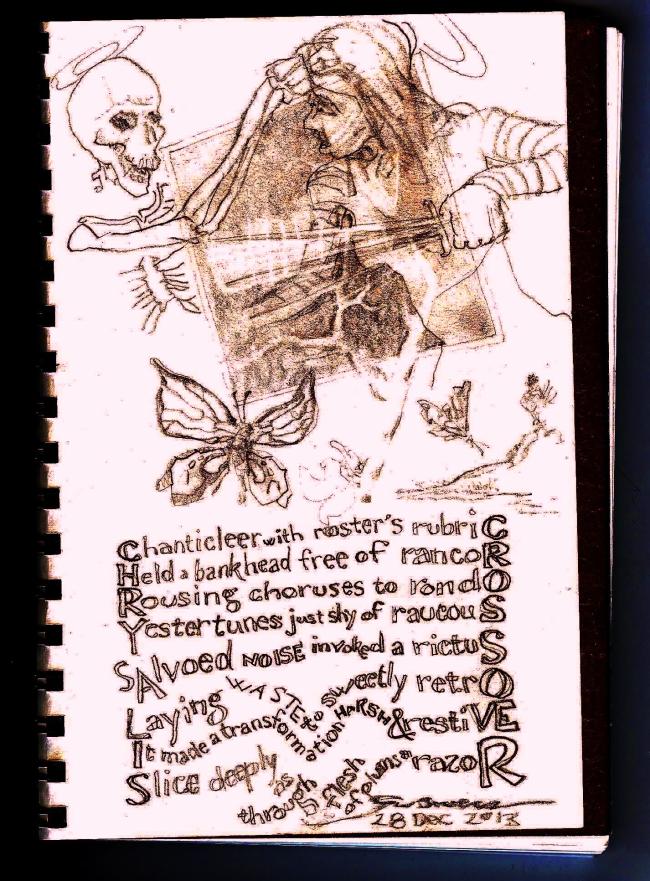 Chanticleer with roster's rubriC
Held a bankhead free of rancoR
Rousing choruses to rondO
Yestertunes just shy of raucouS
SAlvoed NOISE invoked a rictuS
Laying WASTE to sweetly retrO
It made a transformation HARSH & restiVE
Slice deeply as through flesh of razoR
28 DEC 2013